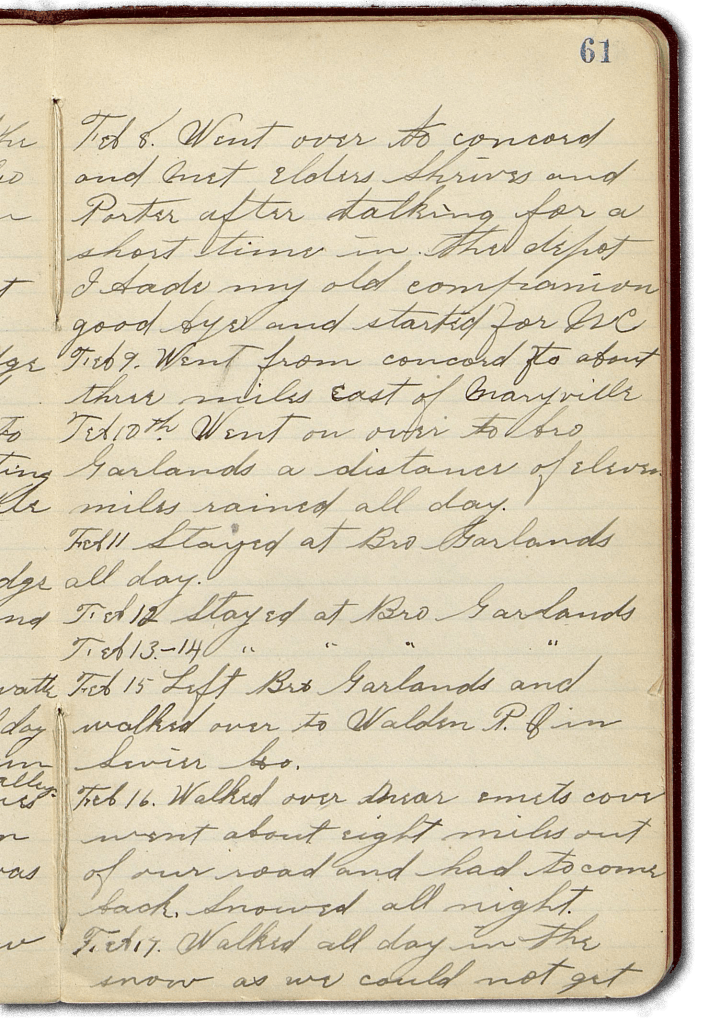 61
Feb 8. Went over to concord
and met Elders Shrives and
Porter after talking for a
short time in the depot
I bade my old companion
good bye and started for NC
Feb 9. Went from concord to about
three miles East of Maryville
Feb 10th. Went on over to bro
Garlands a distance of eleven
miles rained all day.
Feb 11 Stayed at Bro Garlands
all day.
Feb 12 Stayed at Bro Garlands
Feb 13-14 " " " "
Feb 15 Left Bro Garlands and
walked over to Walden P. O in
Sevier Co.
Feb 16. Walked over near emets cove
went about eight miles out
of our road and had to come
back. Snowed all night.
Feb 17. Walked all day in the
snow as we could not get